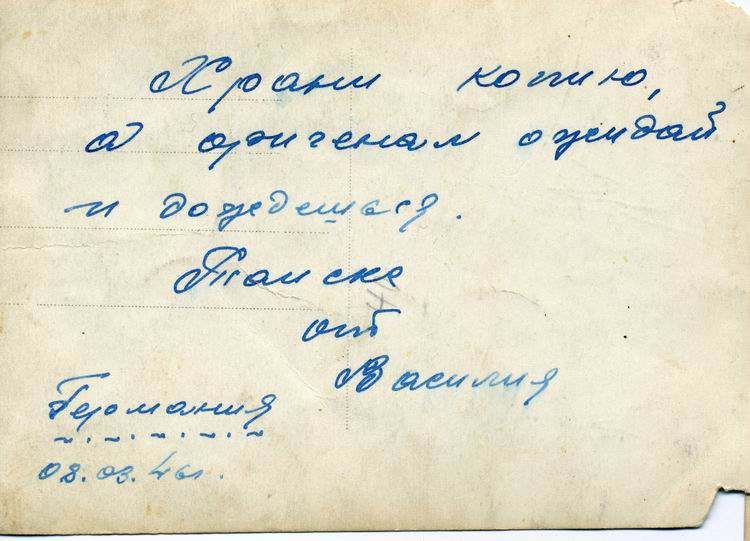 Храни копию,
а оригенал ожидай
и дождешься.
Таиске
от
Василия
Германия
08.03.46г.